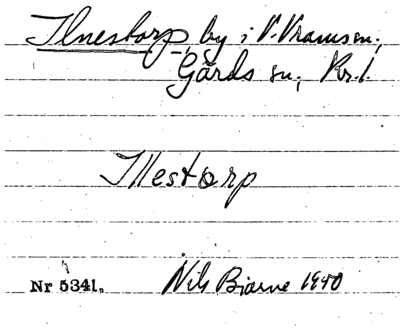 Ilnestorp, by i V. Vram sn,
Gärds hd, Kr. l.
Illestorp
Nr 5341. Nils Bjarne 1940